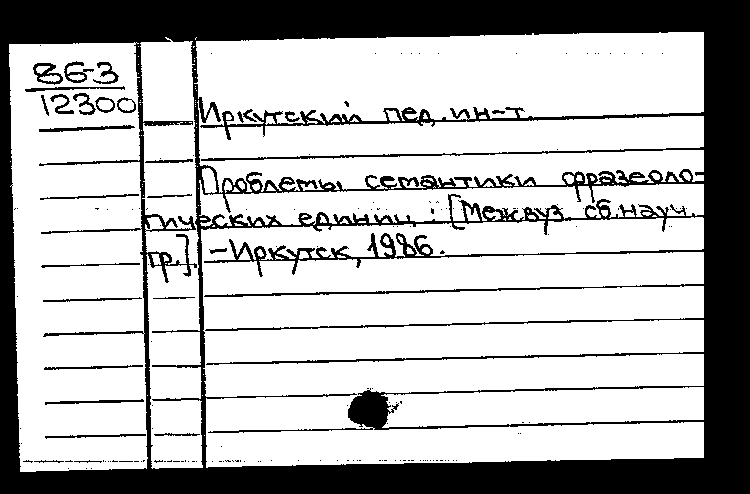 86-3
12300
Иркутский пед. ин-т.
Проблемы семантики фразеоло-
гических единиц : [Межвуз. сб. науч.
тр.]. - Иркутск, 1986.